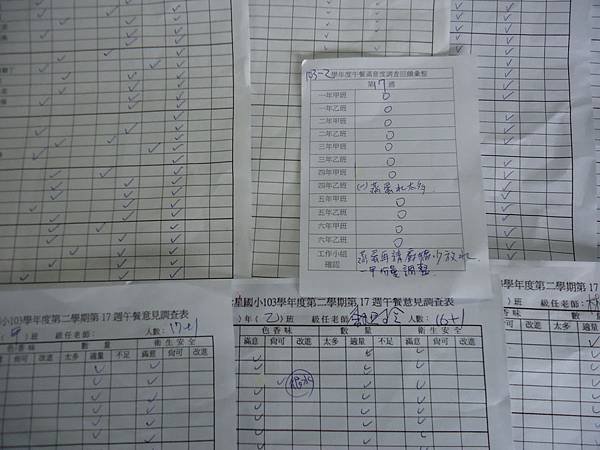 103-2學年度午餐滿意度調查回饋彙整
第17週
一年甲班 ○
一年乙班 ○
二年甲班 ○
二年乙班 ○
三年甲班 ○
三年乙班 ○
四年甲班 ○
四年乙班 (1) 蒸蛋水太多
五年甲班 ○
五年乙班 ○
六年甲班 ○
六年乙班 ○
工作小組確認 蒸蛋再請廚媽少放水
一甲份量調整
小103學年度第二學期第17週午餐意見調查表
甲)班 級任老師: 人數: 17+1
色香味 數量 衛生安全
尚可 改進 太多 適量 不足 滿意 尚可 改進
星國小103學年度第二學期第17週午餐意見調查表
)年(乙)班 級任老師: 人數: 16+1
色香味 數量 衛生安全
滿意 尚可 改進 太多 適量 不足 滿意 尚可 改進
學年度第二學期第
)班 級任老師:
色香味
滿意 尚可 改進 太多